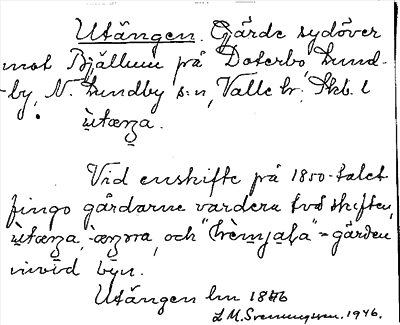 Utängen. Gärde sydöver
mot Bjällum på Doterbo, Lund-
by, N. Lundby s:n, Valle hr. Skb. l
ùtæŋa.
Vid enskifte på 1850-talet
fingo gårdarne vardera två skiften,
ùtæŋa, -æŋɴa, och "hèmjaḷa" = gärden
invid byn.
Utängen lm 1846
L M. Svenungsson. 1946.